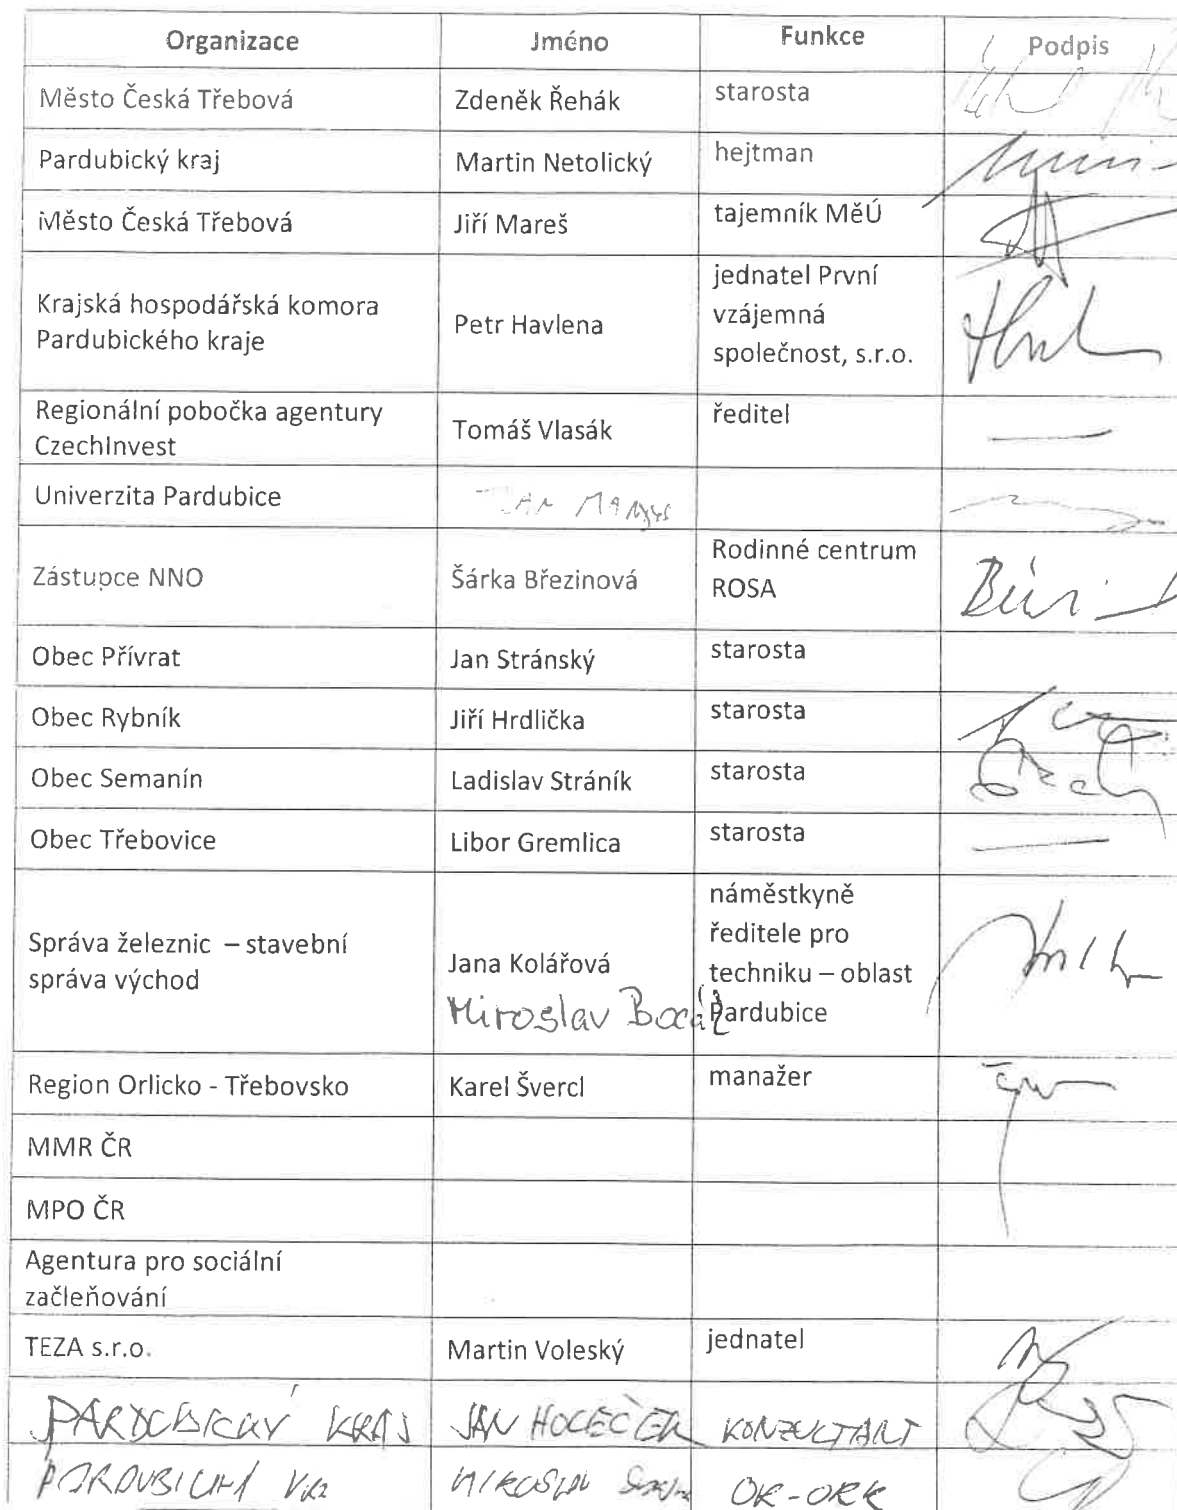 Organizace Jméno Funkce Podpis
Město Česká Třebová Zdeněk Řehák starosta
Pardubický kraj Martin Netolický hejtman
Město Česká Třebová Jiří Mareš tajemník MěÚ
Krajská hospodářská komora
Pardubického kraje
Petr Havlena
jednatel První
vzájemná
společnost, s.r.o.
Regionální pobočka agentury
CzechInvest
Tomáš Vlasák
ředitel
Univerzita Pardubice
Zástupce NNO
Šárka Březinová
Rodinné centrum
ROSA
Obec Přívrat Jan Stránský starosta
Obec Rybník Jiří Hrdlička starosta
Obec Semanín Ladislav Stráník starosta
Obec Třebovice Libor Gremlica starosta
Správa železnic – stavební
správa východ
Jana Kolářová
Miroslav
náměstkyně
ředitele pro
techniku – oblast
Pardubice
Region Orlicko - Třebovsko Karel Švercl manažer
MMR ČR
MPO ČR
Agentura pro sociální
začleňování
TEZA s.r.o. Martin Voleský jednatel
PARDUBICKÝ KRAJ JAN KONZULTANT
OR-ORR